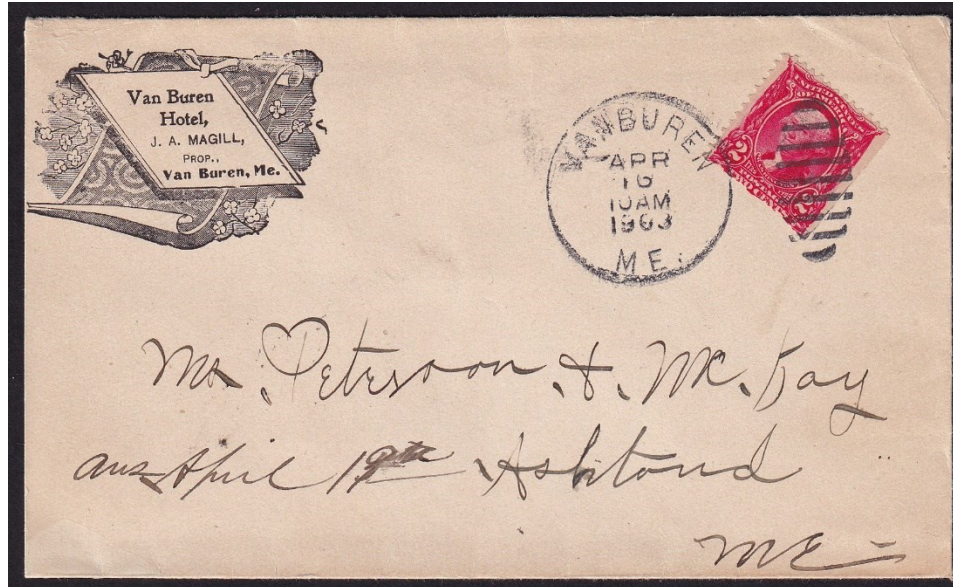 Van Buren
Hotel,
J. A. MAGILL,
PROP.,
Van Buren, Me.
VAN BUREN
APR
16
10AM
1903
ME.
UNITED STATES
OF AMERICA
2 2
Mr. Peterson & Mc. Kay
ans April 19th Ashland
ME